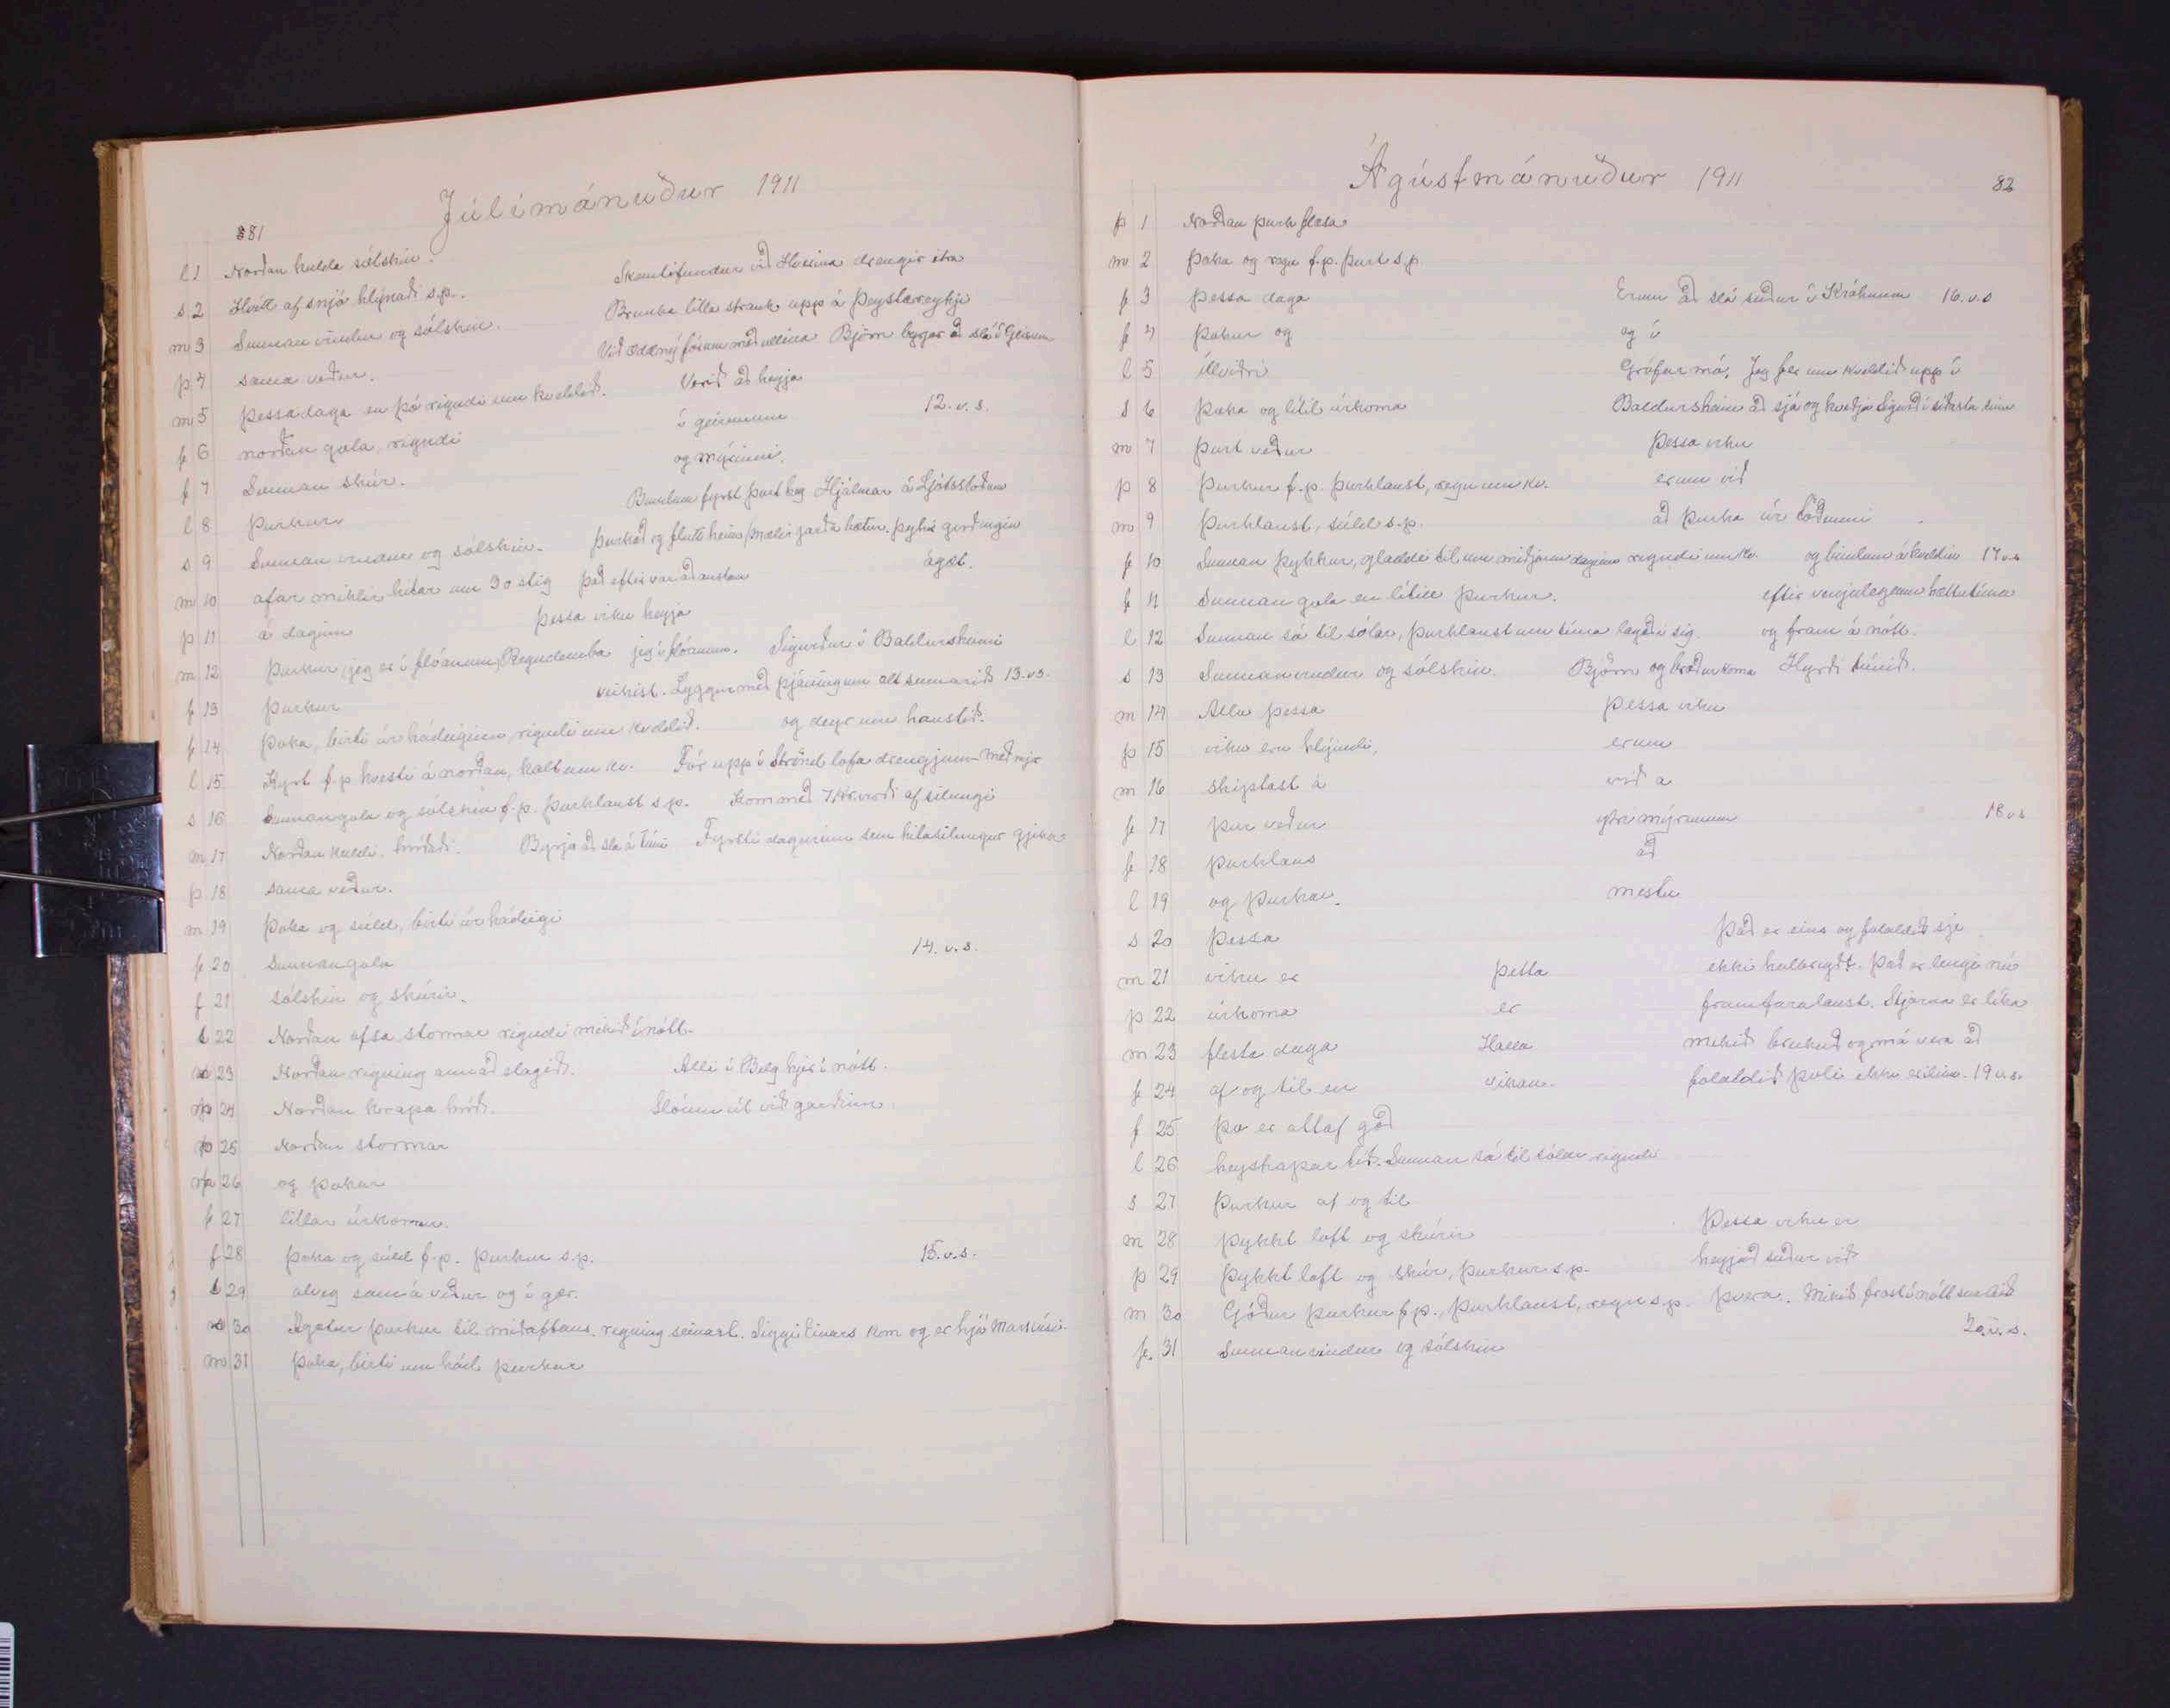 Júlímánuður 1911
81
l 1 Norðan kulda sólskin. Skemtifundur við Hellina drengir
s 2 Hvítt af snjó hlýnaði s.p. Brunka litla strauk upp á Þeystareykji
m 3 Sunnan vindur og sólskin. Við fórum með ullina Björn byrjar að slá
þ 4 sama veður. Verið að heyja
m 5 Þessa daga en þó rigndi um kveldið. í 12. v. s.
f 6 norðan gola, rigndi og mýrinni.
f 7 Sunnan skúr.
l 8 Þurkur Bundum fyrst þurt hey Hjálmar á Ljótsstöðum
s 9 Sunnan vindur og sólskin. Þurkað og flutt heim
m 10 afar miklir hitar um 30 stig það eftir var að austan ágæt.
þ 11 á daginn Þessa viku heyja
m 12 Þurkur, jeg er í flóanum, Regndemba jeg í flóanum. Sigurður í Baldursheimi
f 13 Þurkur veikist. Lyggur með þjáningum alt sumarið 13. v.s.
f 14 Þoka, birti úr hádeginu, rigndi um kveldið. og deyr um haustið.
l 15 Kyrt f.p. hvesti á norðan, kalt um kv. Fór upp í Strönd lofa drengjum með mjer
s 16 Sunnangola og sólskin f.p. þurklaust s.p. Kom með 7 kr. virði af silungi
m 17 Norðan kuldi, hríðaði. Byrja að slá á túni Fyrsti dagurinn sem
þ 18 sama veður.
m 19 Þoka og súld, birti úr hádeigi
f 20 Sunnangola 14. v. s.
f 21 sólskin og skúrir.
l 22 Norðan ofsa stormar rigndi mikið í nótt.
s 23 Norðan rigning annað slagið. Alli í Belg hjer í nótt.
m 24 Norðan krapa hríð. Slóum út við garðinn
þ 25 Norðan stormar
m 26 og þokur
f 27 litlar úrkomur.
f 28 Þoka og súld f.p. þurkur s.p. 15. v. s.
l 29 alveg sama veður og í gær.
s 30 Ágætur þurkur til miðaftans. rigning seinast. Siggi Einars kom og er hjá
m 31 Þoka, birti um hád. þurkur
Ágústmánuður 1911
82
þ 1 Norðan þurk flæsa
m 2 Þoka og regn f.p. þurt s.p.
f 3 Þessa daga Erum að slá suður í Krákunum 16. v. s
f 4 Þokur og og í
l 5 illviðri Grófar mó. Jeg fer um kveldið upp í
s 6 Þoka og lítil úrkoma Baldursheim að sjá og kveðja Sigurð í síðasta sinn
m 7 Þurt veður Þessa viku
þ 8 Þurkur f.p. þurklaust, regn um kv. erum við
m 9 Þurklaust, súld s.p. að þurka úr töðunni
f 10 Sunnan þykkur, gladdi til um miðjann daginn rigndi um kv. og bindum á kveldin 17 v.s
f 11 Sunnan gola en lítill þurkur. eftir venjulegum háttutíma
l 12 Sunnan sá til sólar, þurklaust um tíma lagði sig. og fram á nótt.
s 13 Sunnanvindur og sólskin. Björn og bróður koma Hyrði túnið.
m 14 Alla þessa Þessa viku
þ 15 viku eru hlýindi, erum
m 16 skiptast á við a
f 17 þur veður mýrunum 18 v s
f 18 þurklaus að
l 19 og þurkar. mestu
s 20 Þessa Það er eins og folaldið sje
m 21 viku er þetta ekki heilbrygdt. Það er lengi nú
þ 22 úrkoma er framfaralaust. Stjarna er líka
m 23 flesta daga Halla mikið brukuð og má vera að
f 24 af og til en vikan. folaldið þoli ekki 19 v.s.
f 25 þo er altaf góð
l 26 heyskapar tíð. Sunnan sá til sólar rigndi
s 27 Þurkur af og til
m 28 Þykkt loft og skúrir Þessa viku er
þ 29 Þykkt loft og skúr, þurkur s.p. heyjað suður við
m 30 Góður þurkur f.p. þurklaust, regn s.p. Þvera. Mikið frost í nótt
f. 31 Sunnanvindur og sólskin 20. v. s.